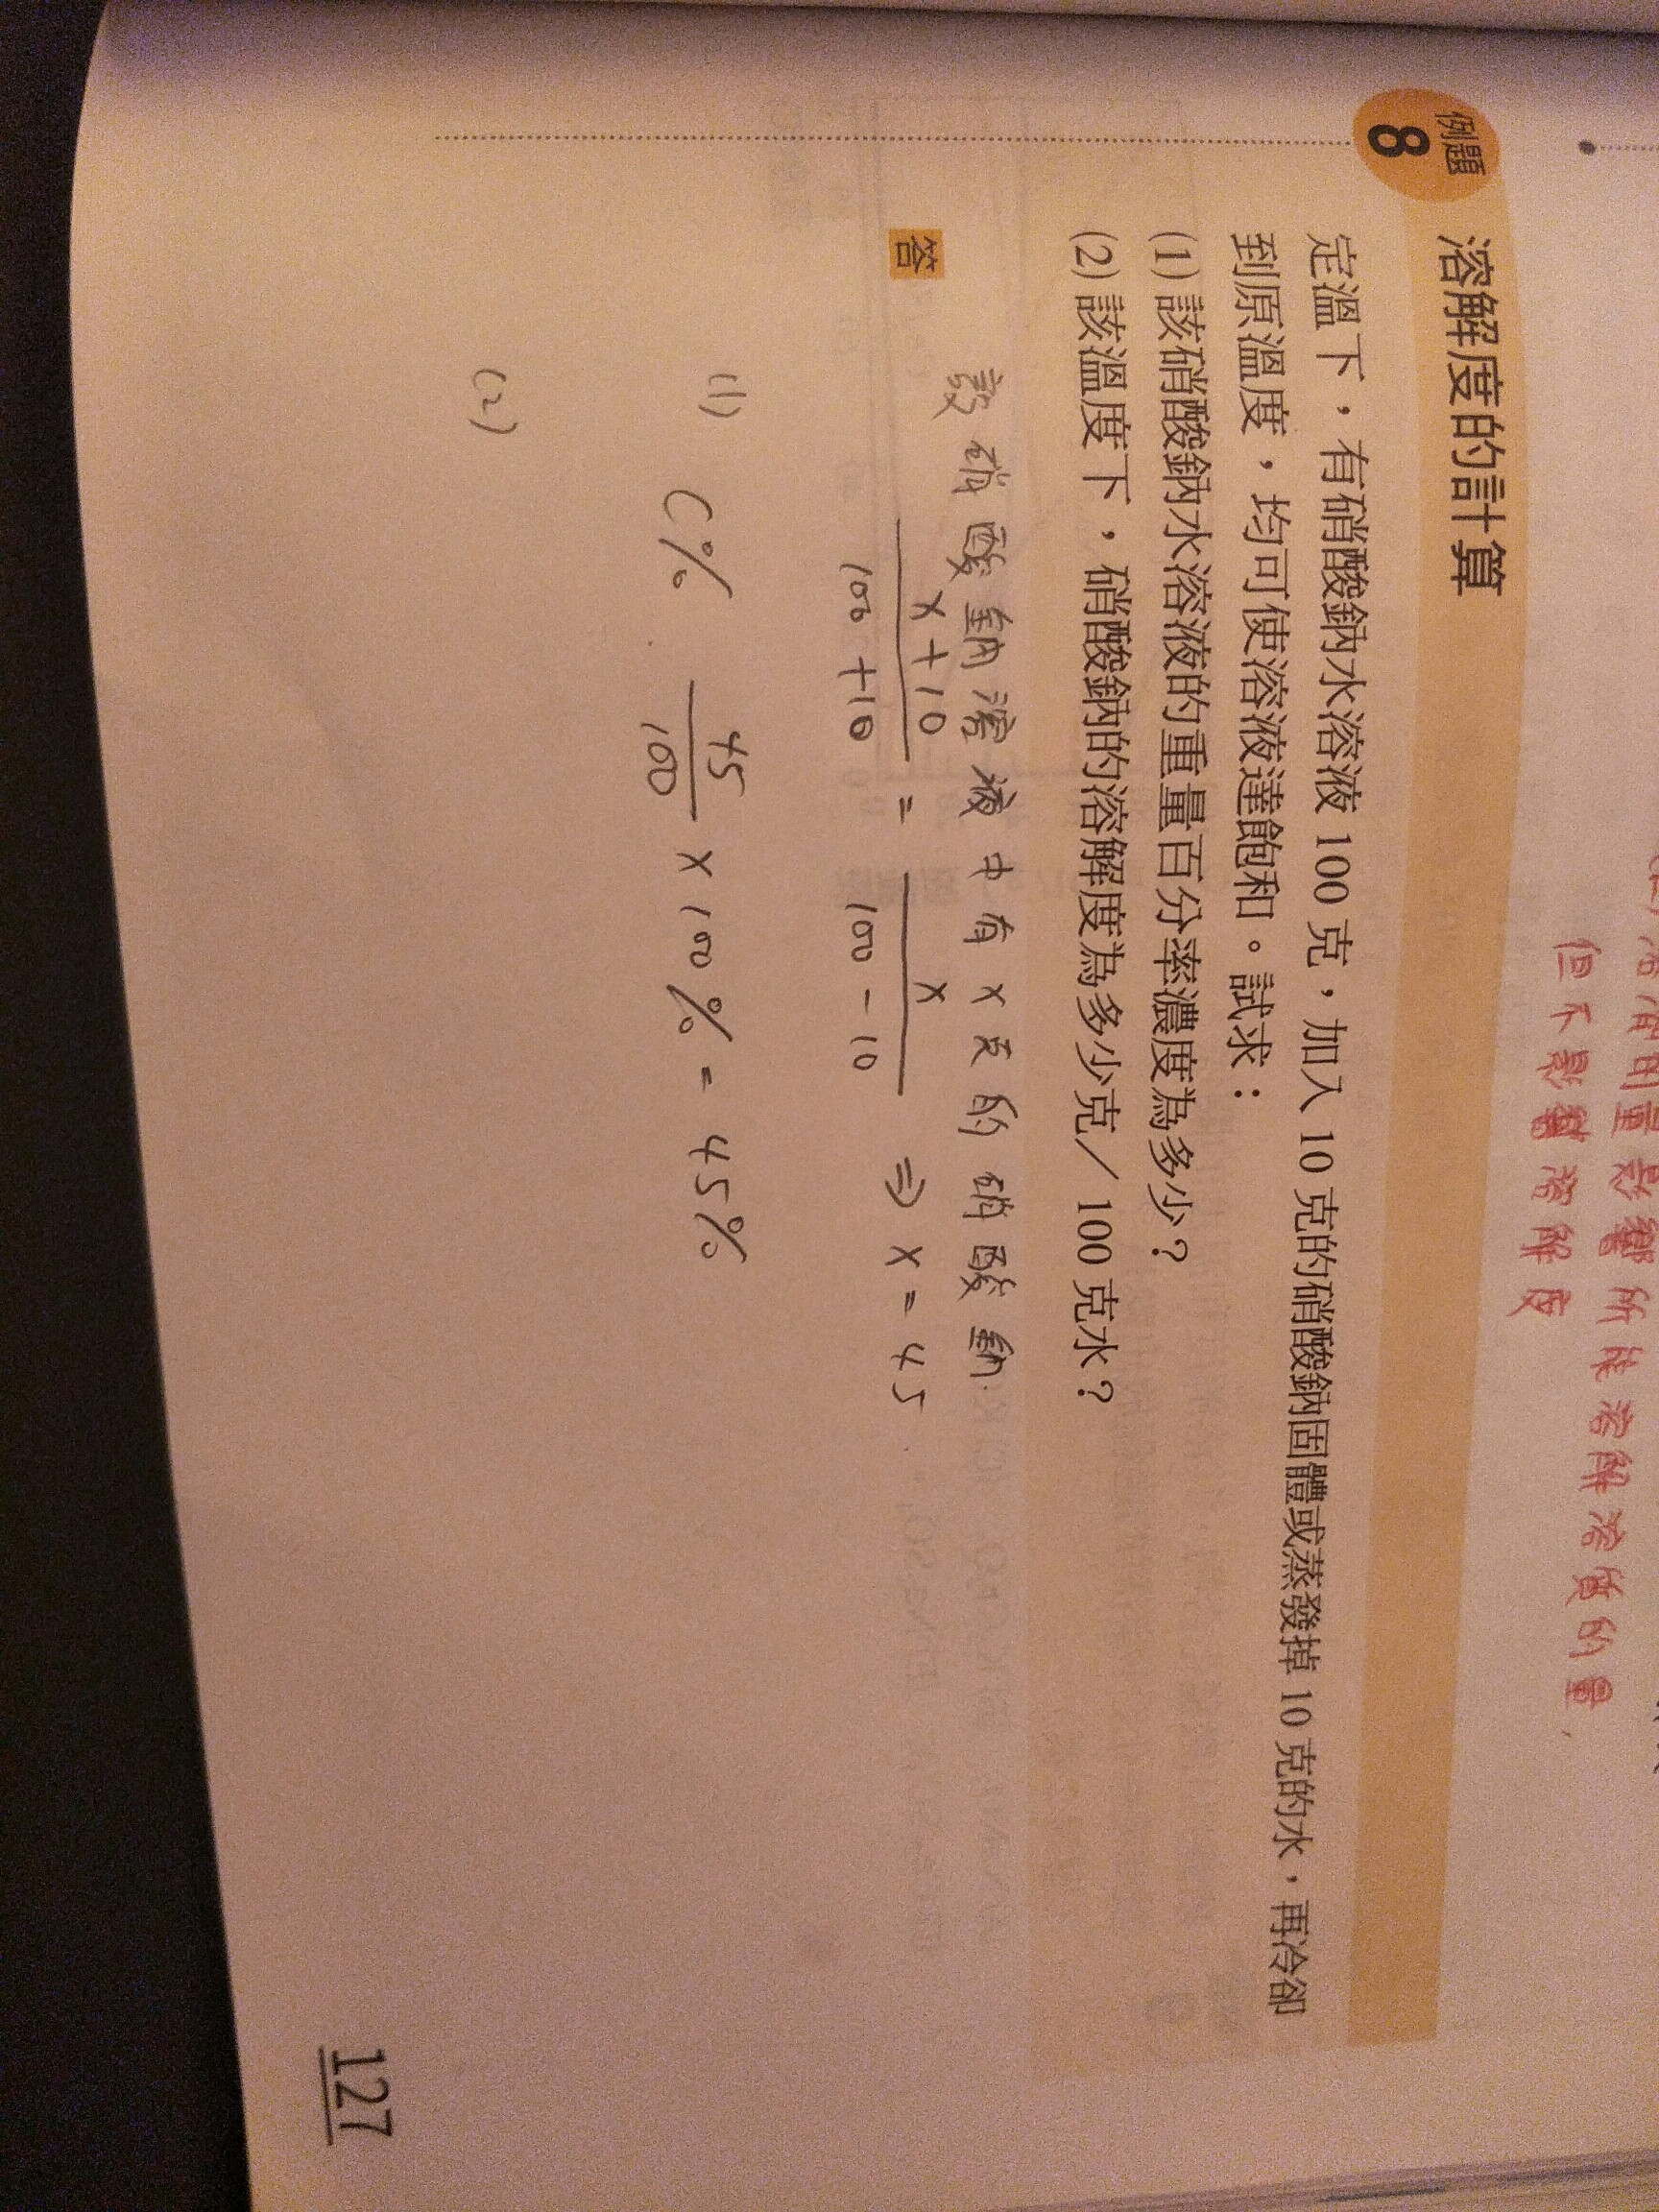 但不影響溶解度
例題
8
溶解度的計算
定溫下，有硝酸鈉水溶液 100 克，加入 10 克的硝酸鈉固體或蒸發掉 10 克的水，再冷卻
到原溫度，均可使溶液達飽和。試求：
(1) 該硝酸鈉水溶液的重量百分率濃度為多少？
(2) 該溫度下，硝酸鈉的溶解度為多少克／100 克水？
答
設硝酸鈉溶液中有 x 克的硝酸鈉.
x+10 / 100+10 = x / 100-10 ⇒ x = 45
(1) C% 45/100 × 100% = 45%
(2)
127